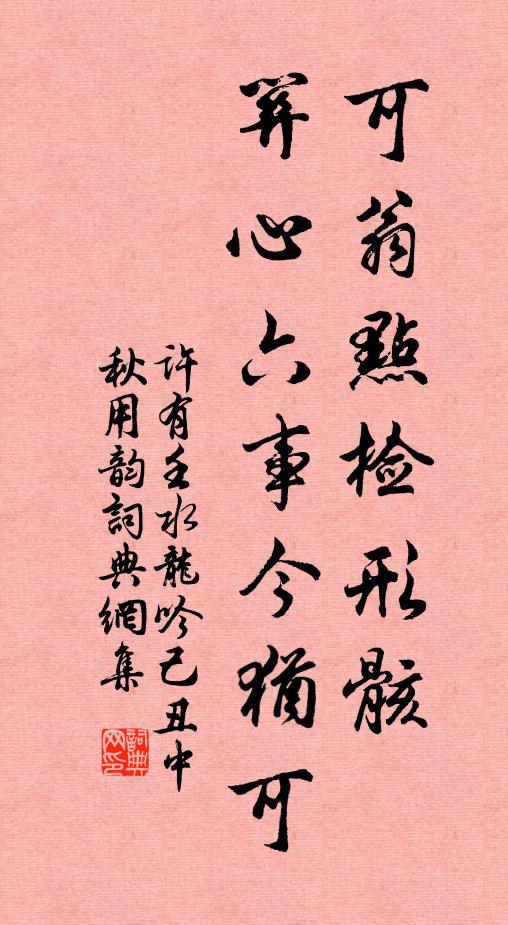 可翁點檢形骸
筭心六事今猶可
許有壬水龍吟己丑中
秋用韵詞典網集
詞典网印